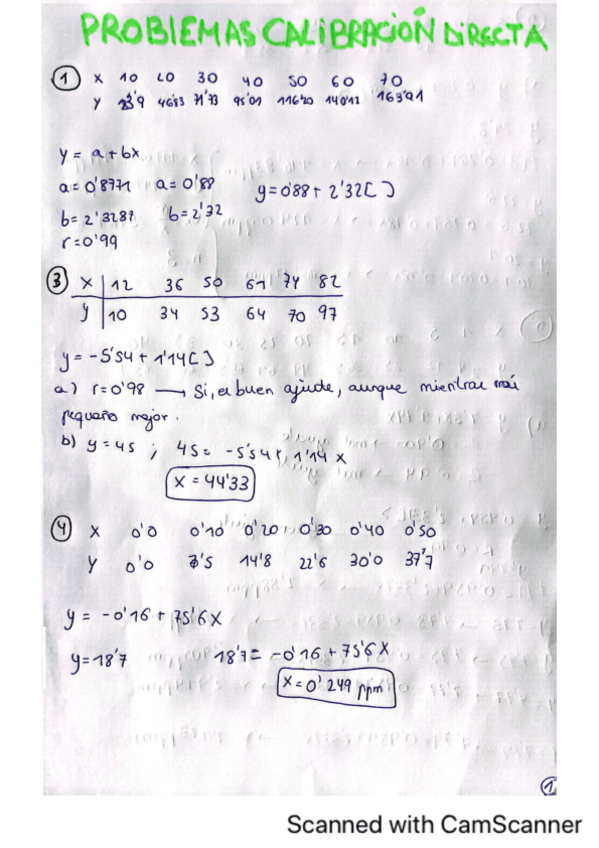 PROBLEMAS CALIBRACIÓN DIRECTA
1 X 10 20 30 40 50 60 70
Y 23'9 46'83 71'73 95'01 116'20 140'12 163'91
y = a + bx
a = 0'8771 a = 0'88 y = 0'88 + 2'32[ ]
b = 2'3287 b = 2'32
r = 0'99
3 X 12 36 50 61 74 82
y 10 34 53 64 70 97
y = -5'54 + 1'14[ ]
a) r = 0'98 → Si, es buen ajuste, aunque mientras más
pequeño mejor.
b) y = 45 ; 45 = -5'54 + 1'14 x
X = 44'33
4 X 0'0 0'10 0'20 0'30 0'40 0'50
Y 0'0 7'5 14'8 22'6 30'0 37'7
y = -0'16 + 75'6X
y = 18'7 18'7 = -0'16 + 75'6 X
X = 0'249 ppm
1
Scanned with CamScanner